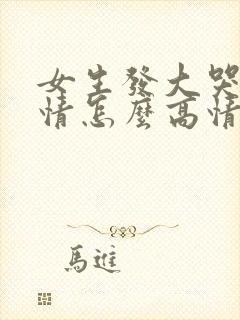 女生發大哭
情怎麼高情
馬進